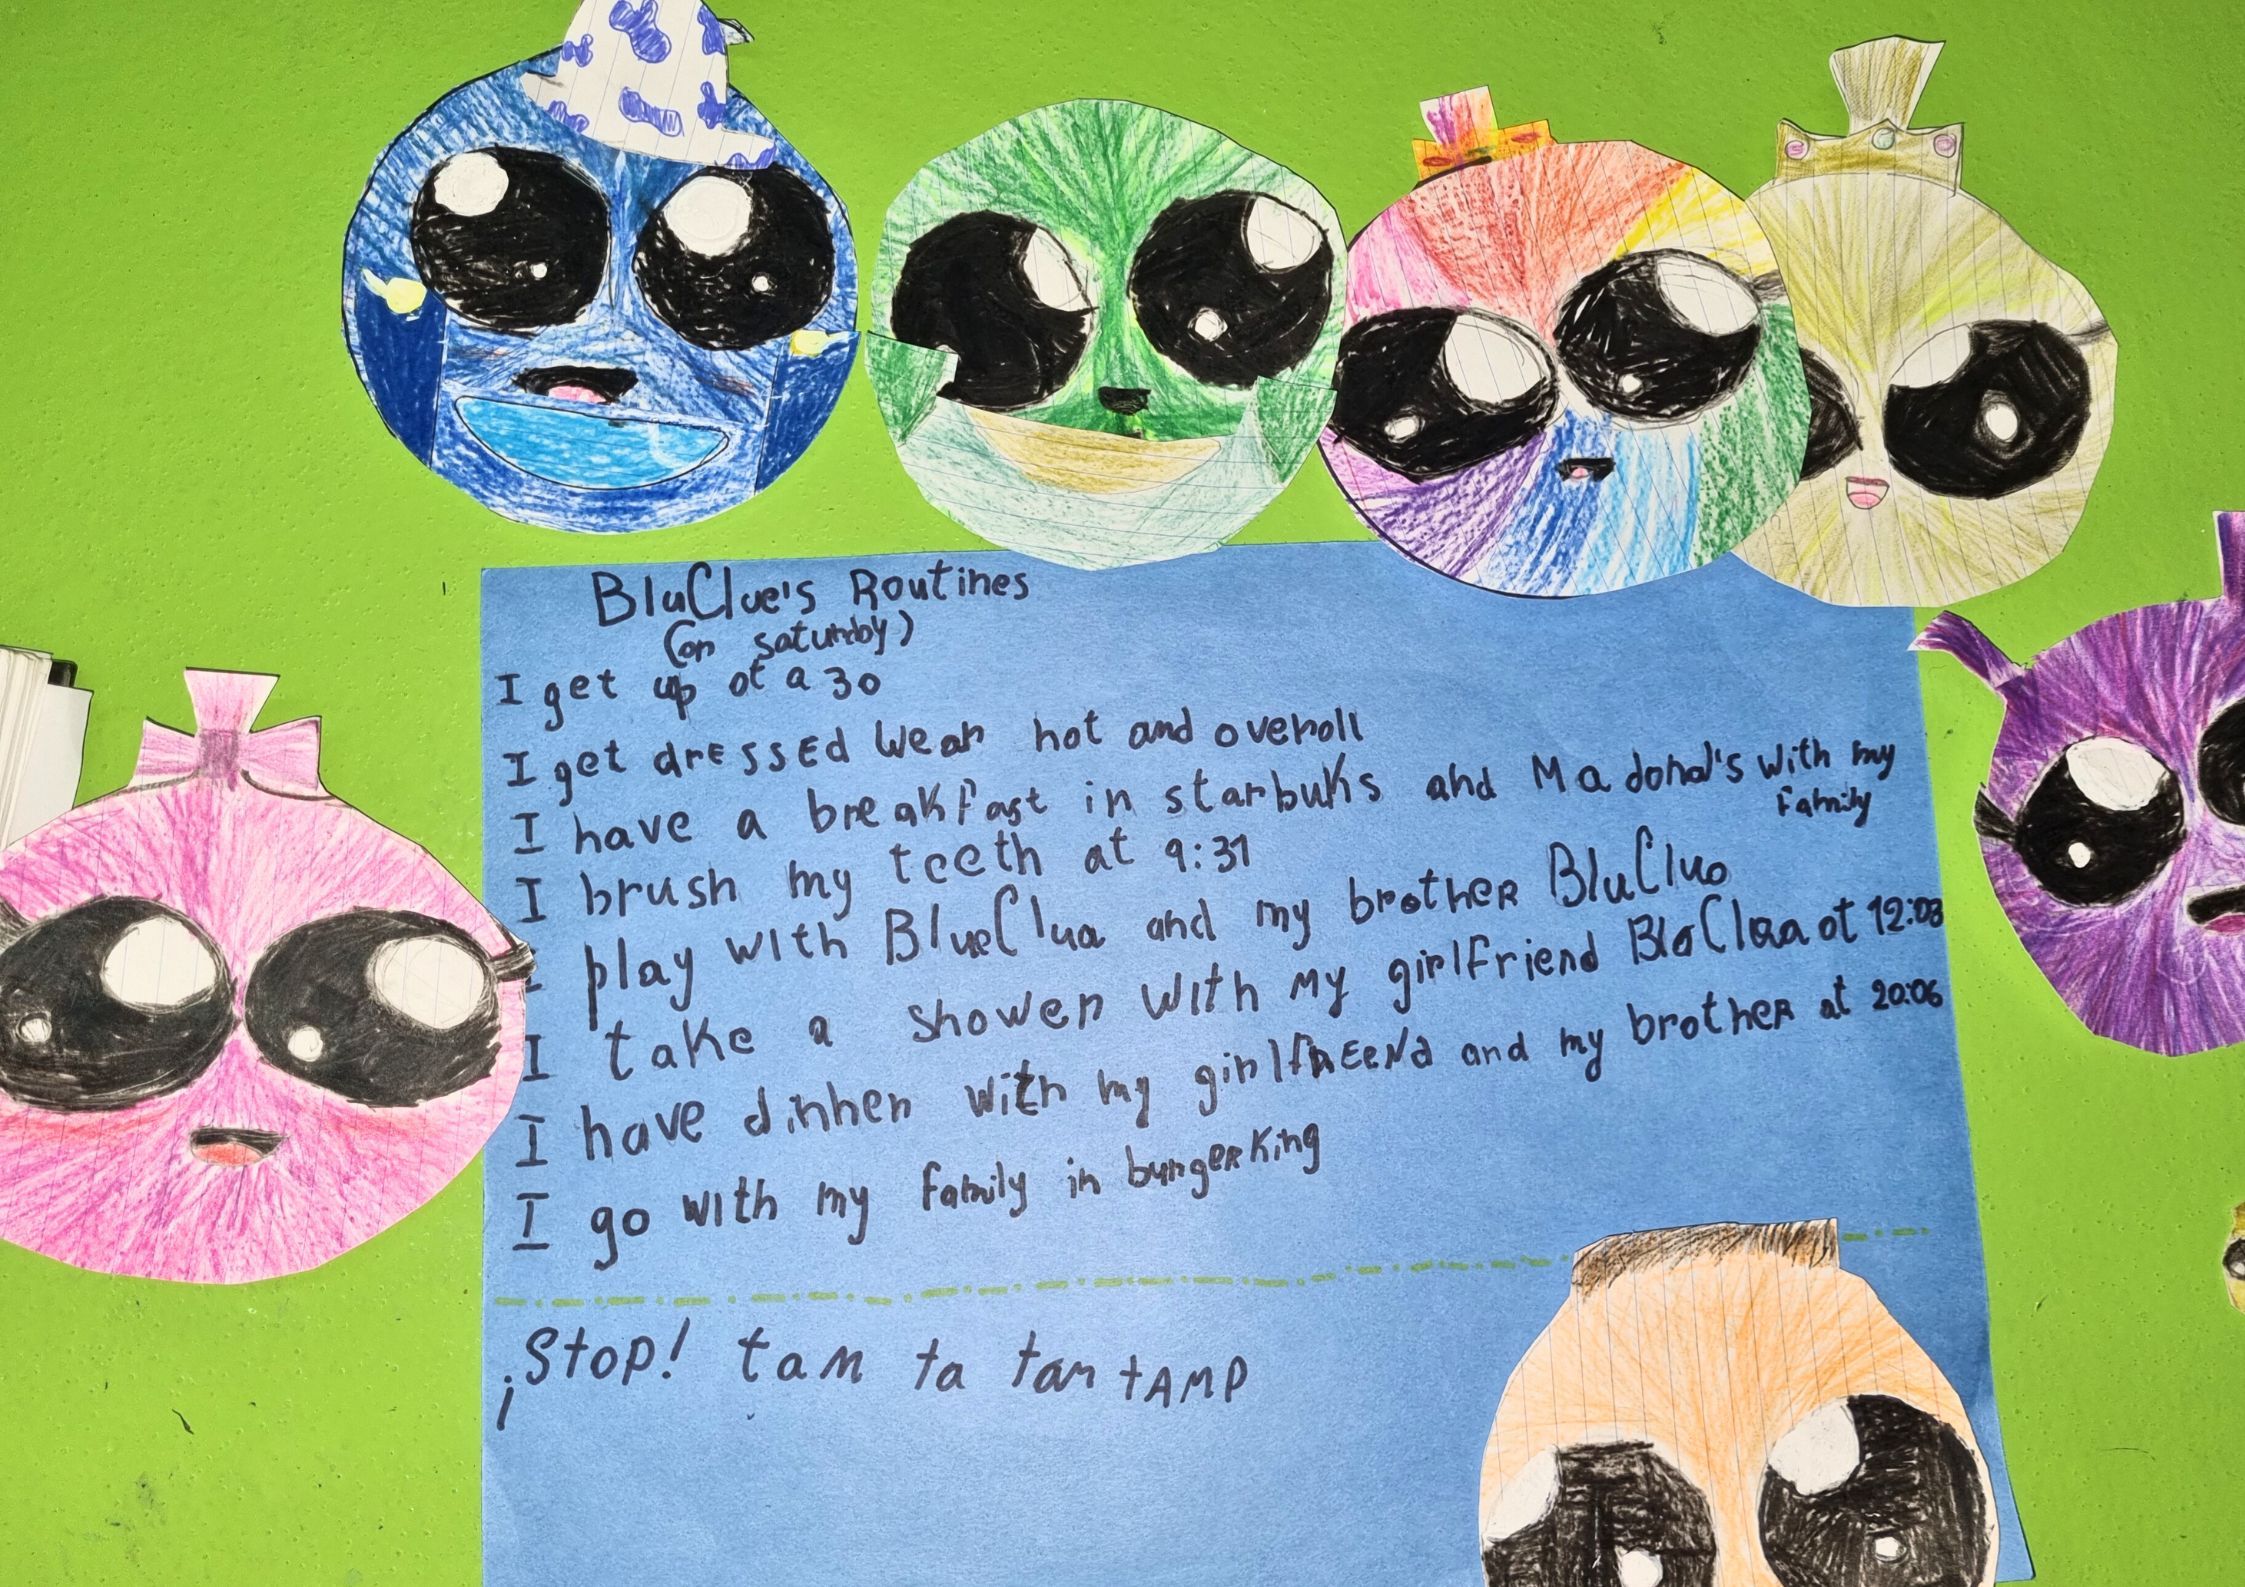 BluClue's Routines
(on saturday)
I get up at a 30
I get dressed wear hat and overoll
I have a breakfast in starbuks and Madonal's with my
family
I brush my teeth at 9:31
I play with BlueClua and my brother BluCluo
I take a shower with my girlfriend BlaClaa at 12:03
I have dinner with my girlfreend and my brother at 20:06
I go with my family in burgerKing
¡Stop! tam ta tam tAMP